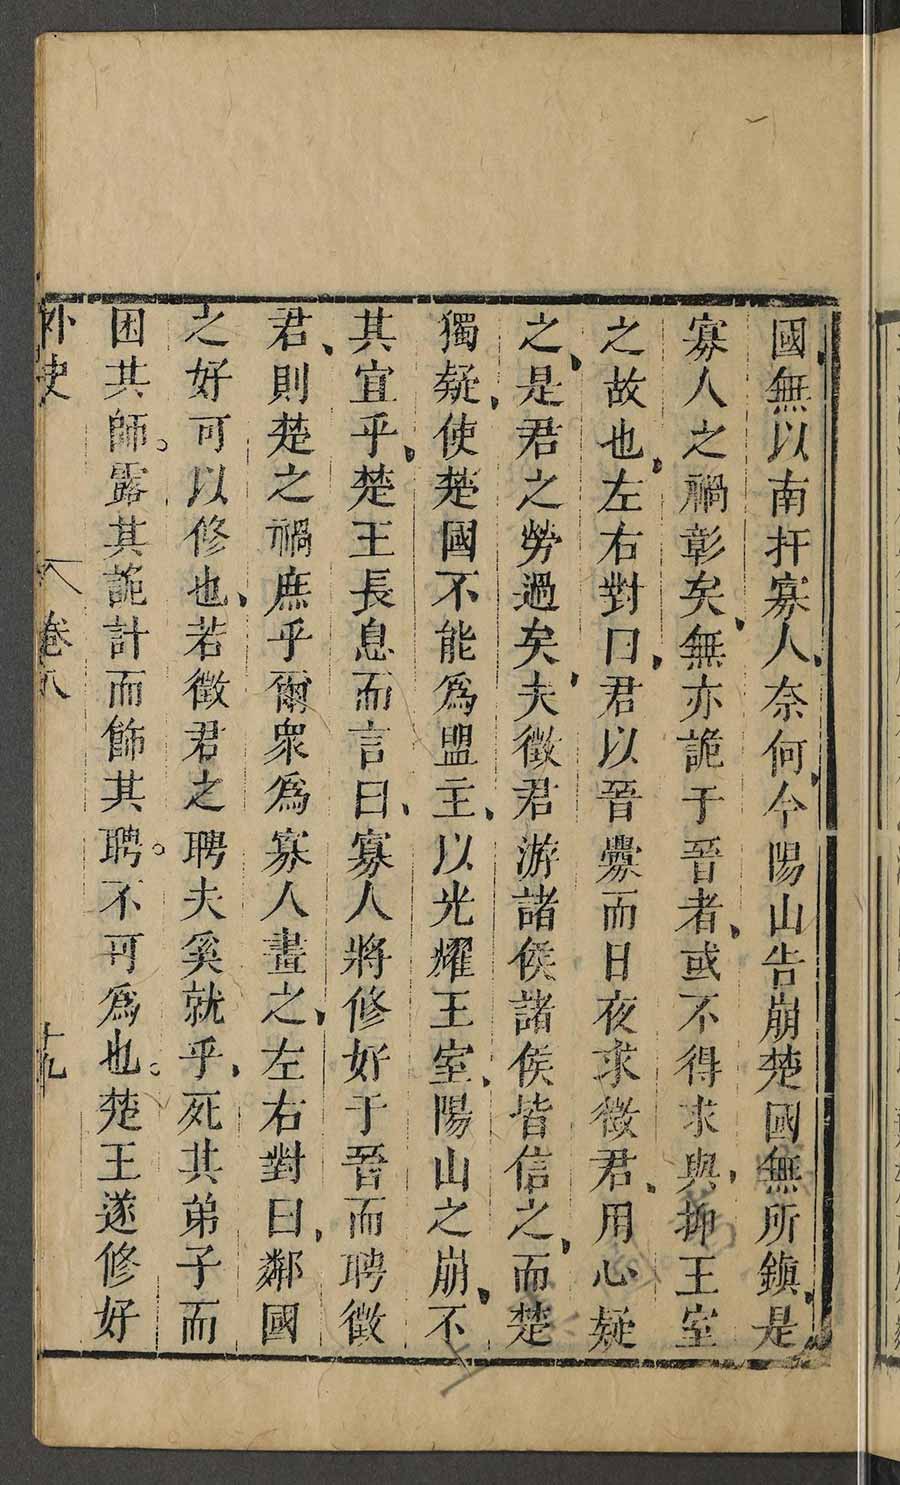 國無以南扞寡人奈何今陽山告崩楚國無所鎮是
寡人之禍彰矣無亦詭于晉者或不得求與抑王室
之故也左右對曰君以晉釁而日夜求徵君用心疑
之是君之勞過矣夫徵君游諸侯諸侯皆信之而楚
獨疑使楚國不能為盟主以光耀王室陽山之崩不
其宜乎楚王長息而言曰寡人將修好于晉而聘徵
君則楚之禍庶乎爾衆為寡人畫之左右對曰鄰國
之好可以修也若徵君之聘夫奚就乎死其弟子而
困其師露其詭計而飾其聘不可為也楚王遂修好
卷八
十九